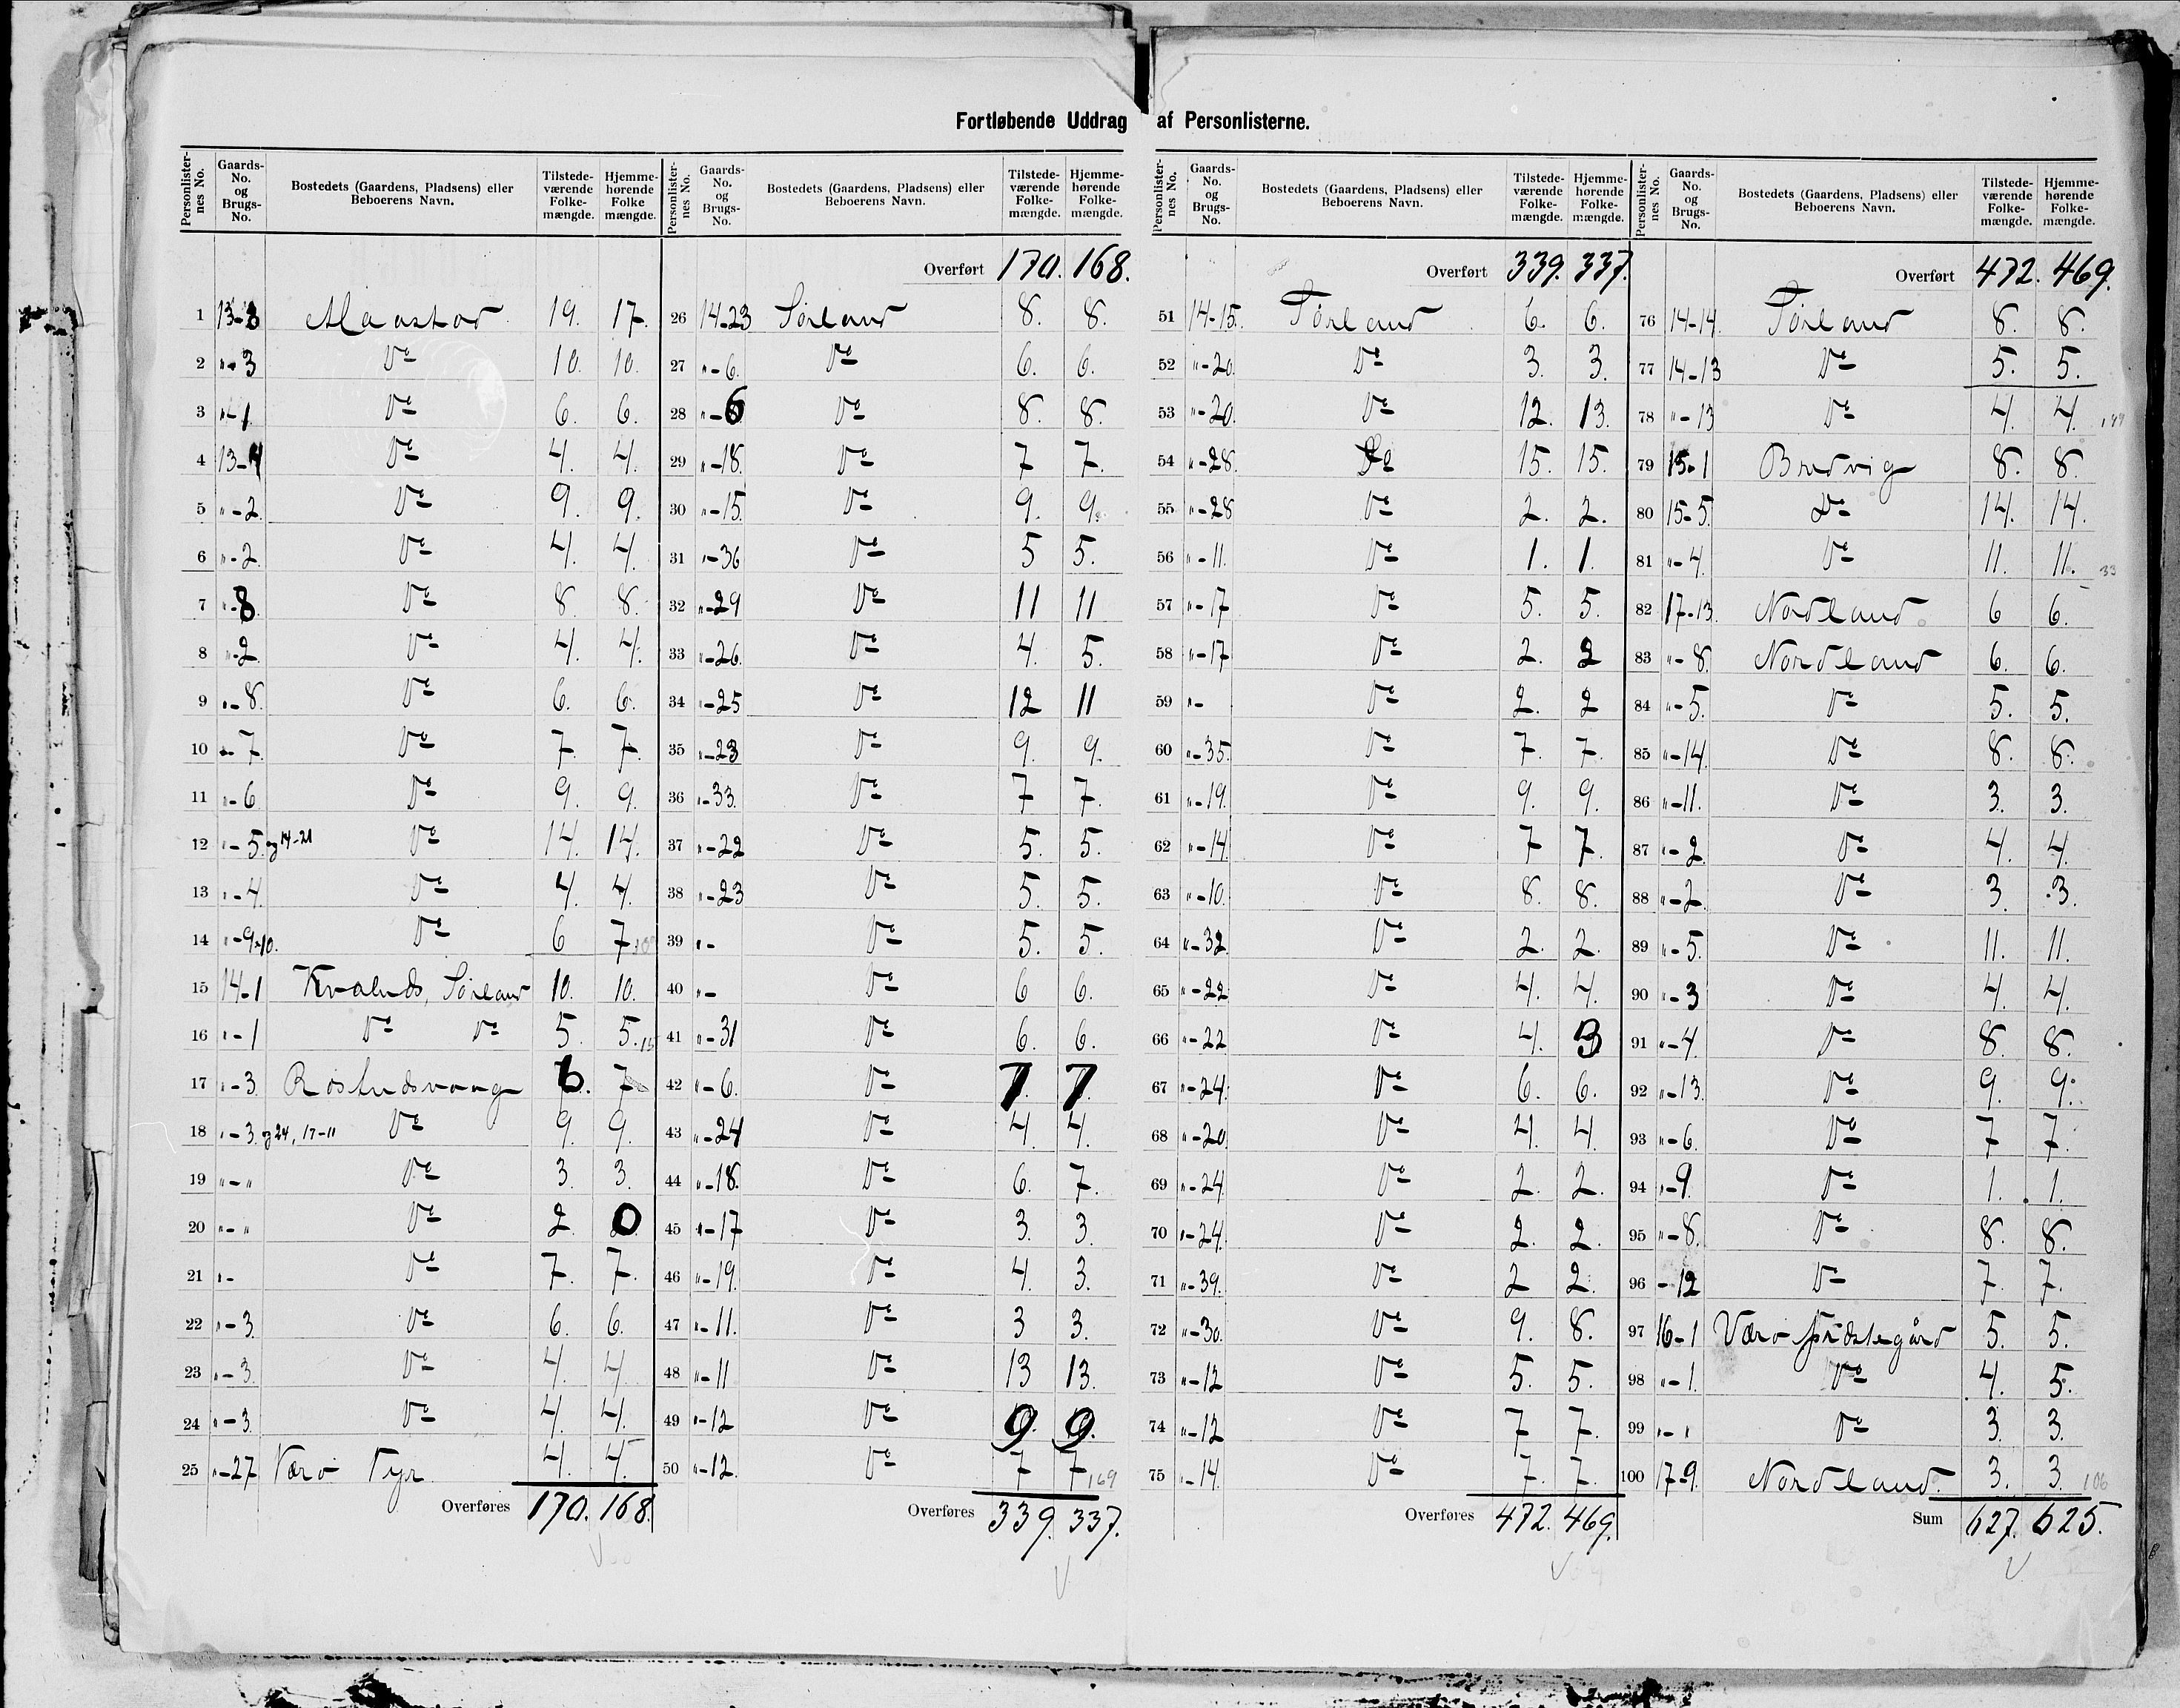 Fortløbende Uddrag af Personlisterne.
Personlister-nes No. Gaards-No. og Brugs-No. Bostedets (Gaardens, Pladsens) eller Beboerens Navn. Tilstede-værende Folke-mængde. Hjemme-hørende Folke mængde.
1 13-3 Maastad 19. 17.
2 „-3 Do 10. 10.
3 „-1 Do 6. 6.
4 13-4 Do 4. 4.
5 „-2 Do 9. 9.
6 „-2 Do 4. 4.
7 „-8 Do 8. 8.
8 „-2 Do 4. 4.
9 „-8. Do 6. 6.
10 „-7. Do 7. 7.
11 „-6 Do 9. 9.
12 „-5. og 14-21 Do 14. 14.
13 „-4. Do 4. 4.
14 „-9-10. Do 6 7.
15 14-1 Kvalnds, Sørland 10. 10.
16 „-1 Do Do 5. 5. 15
17 „-3. Røstndsvaag 6. 7
18 „-3. og 24, 17-11 Do 9. 9.
19 „-„ Do 3. 3.
20 „-„ Do 2 0
21 „- Do 7. 7.
22 „-3. Do 6. 6.
23 „-3. Do 4. 4
24 „-3 Do 4. 4.
25 „-27 Værø Fyr 4. 4.
Overføres 170. 168.
Personlister-nes No. Gaards-No. og Brugs-No. Bostedets (Gaardens, Pladsens) eller Beboerens Navn. Tilstede-værende Folke-mængde. Hjemme-hørende Folke-mængde.
Overført 170. 168.
26 14-23 Sørland 8. 8.
27 „-6. Do 6. 6.
28 „-6 Do 8. 8.
29 „-18. Do 7 7.
30 „-15. Do 9. 9.
31 „-36 Do 5 5.
32 „-29 Do 11 11
33 „-26. Do 4. 5.
34 „-25 Do 12 11
35 „-23 Do 9. 9.
36 „-33. Do 7 7.
37 „-22 Do 5. 5.
38 „-23 Do 5. 5.
39 „- Do 5. 5.
40 „- Do 6 6.
41 „-31 Do 6. 6.
42 „-6. Do 7. 7.
43 „-24 Do 4. 4.
44 „-18. Do 6. 7.
45 „-17 Do 3. 3.
46 „-19. Do 4. 3.
47 „-11. Do 3 3.
48 „-11 Do 13 13.
49 „-12 Do 9. 9.
50 „-12. Do 7 7 169
Overføres 339. 337.
Personlister-nes No. Gaards-No. og Brugs-No. Bostedets (Gaardens, Pladsens) eller Beboerens Navn. Tilstede-værende Folke-mængde. Hjemme-hørende Folke-mængde.
Overført 339. 337.
51 14-15. Sørland 6. 6.
52 „-20. Do 3. 3.
53 „-20. Do 12. 13.
54 „-28. Do 15. 15.
55 „-28 Do 2. 2.
56 „-11. Do 1. 1.
57 „-17 Do 5. 5.
58 „-17 Do 2. 2
59 „- Do 2. 2
60 „-35. Do 7. 7.
61 „-19. Do 9. 9.
62 „-14. Do 7 7.
63 „-10. Do 8. 8.
64 „-32 Do 2. 2.
65 „-22 Do 4. 4.
66 „-22 Do 4. 3
67 „-24. Do 6. 6.
68 „-20. Do 4. 4.
69 „-24 Do 2. 2.
70 „-24. Do 2. 2.
71 „-39. Do 2 2.
72 „-30. Do 9. 8.
73 „-12 Do 5. 5.
74 „-12 Do 7 7.
75 „-14. Do 7. 7.
Overføres 472. 469.
Personlister-nes No. Gaards-No. og Brugs-No. Bostedets (Gaardens, Pladsens) eller Beboerens Navn. Tilstede-værende Folke-mængde. Hjemme-hørende Folke-mængde.
Overført 472. 469.
76 14-14. Sørland 8. 8.
77 14-13 Do 5. 5.
78 „-13 Do 4. 4.
79 15-1 Bredvig 8. 8.
80 15-5. Do 14. 14.
81 „-4. Do 11. 11. 33
82 17-13. Nordland 6 6.
83 „-8. Nordland 6. 6.
84 „-5. Do 5. 5.
85 „-14. Do 8. 8.
86 „-11. Do 3. 3.
87 „-2 Do 4. 4.
88 „-2. Do 3. 3.
89 „-5. Do 11. 11.
90 „-3 Do 4. 4.
91 „-4. Do 8. 8.
92 „-13. Do 9. 9.
93 „-6. Do 7 7.
94 „-9. Do 1. 1.
95 „-8. Do 8. 8.
96 -12 Do 7. 7.
97 16-1 Værø Prestegård 5. 5.
98 „-1. Do 4. 5.
99 „-„ Do 3. 3.
100 17-9. Nordland. 3. 3 106
Sum 627. 625.